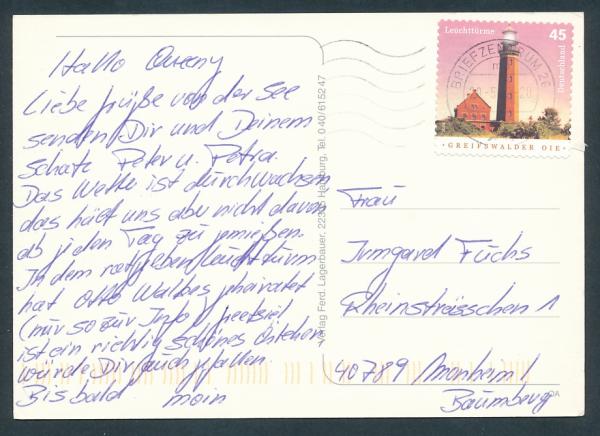 Hallo Queeny
Liebe Grüße von der See
senden Dir und Deinem
Schatz Peter u. Petra.
Das Wetter ist durchwachsen
das hält uns aber nicht davon
ab jeden Tag zu genießen.
In dem Leuchtturm
hat Otto Walkes geheiratet
(nur so zur Info)
ist ein richtig schönes
würde Dir auch gefallen.
Bis bald moin
Verlag Ferd. Lagerbauer, Hamburg, Tel. 040/615247
Leuchttürme 45
Deutschland
BRIEFZENTRUM 26
GREIFSWALDER OIE
Frau
Irmgard Fuchs
Rheinsträsschen 1
40789 Monheim
Baumberg